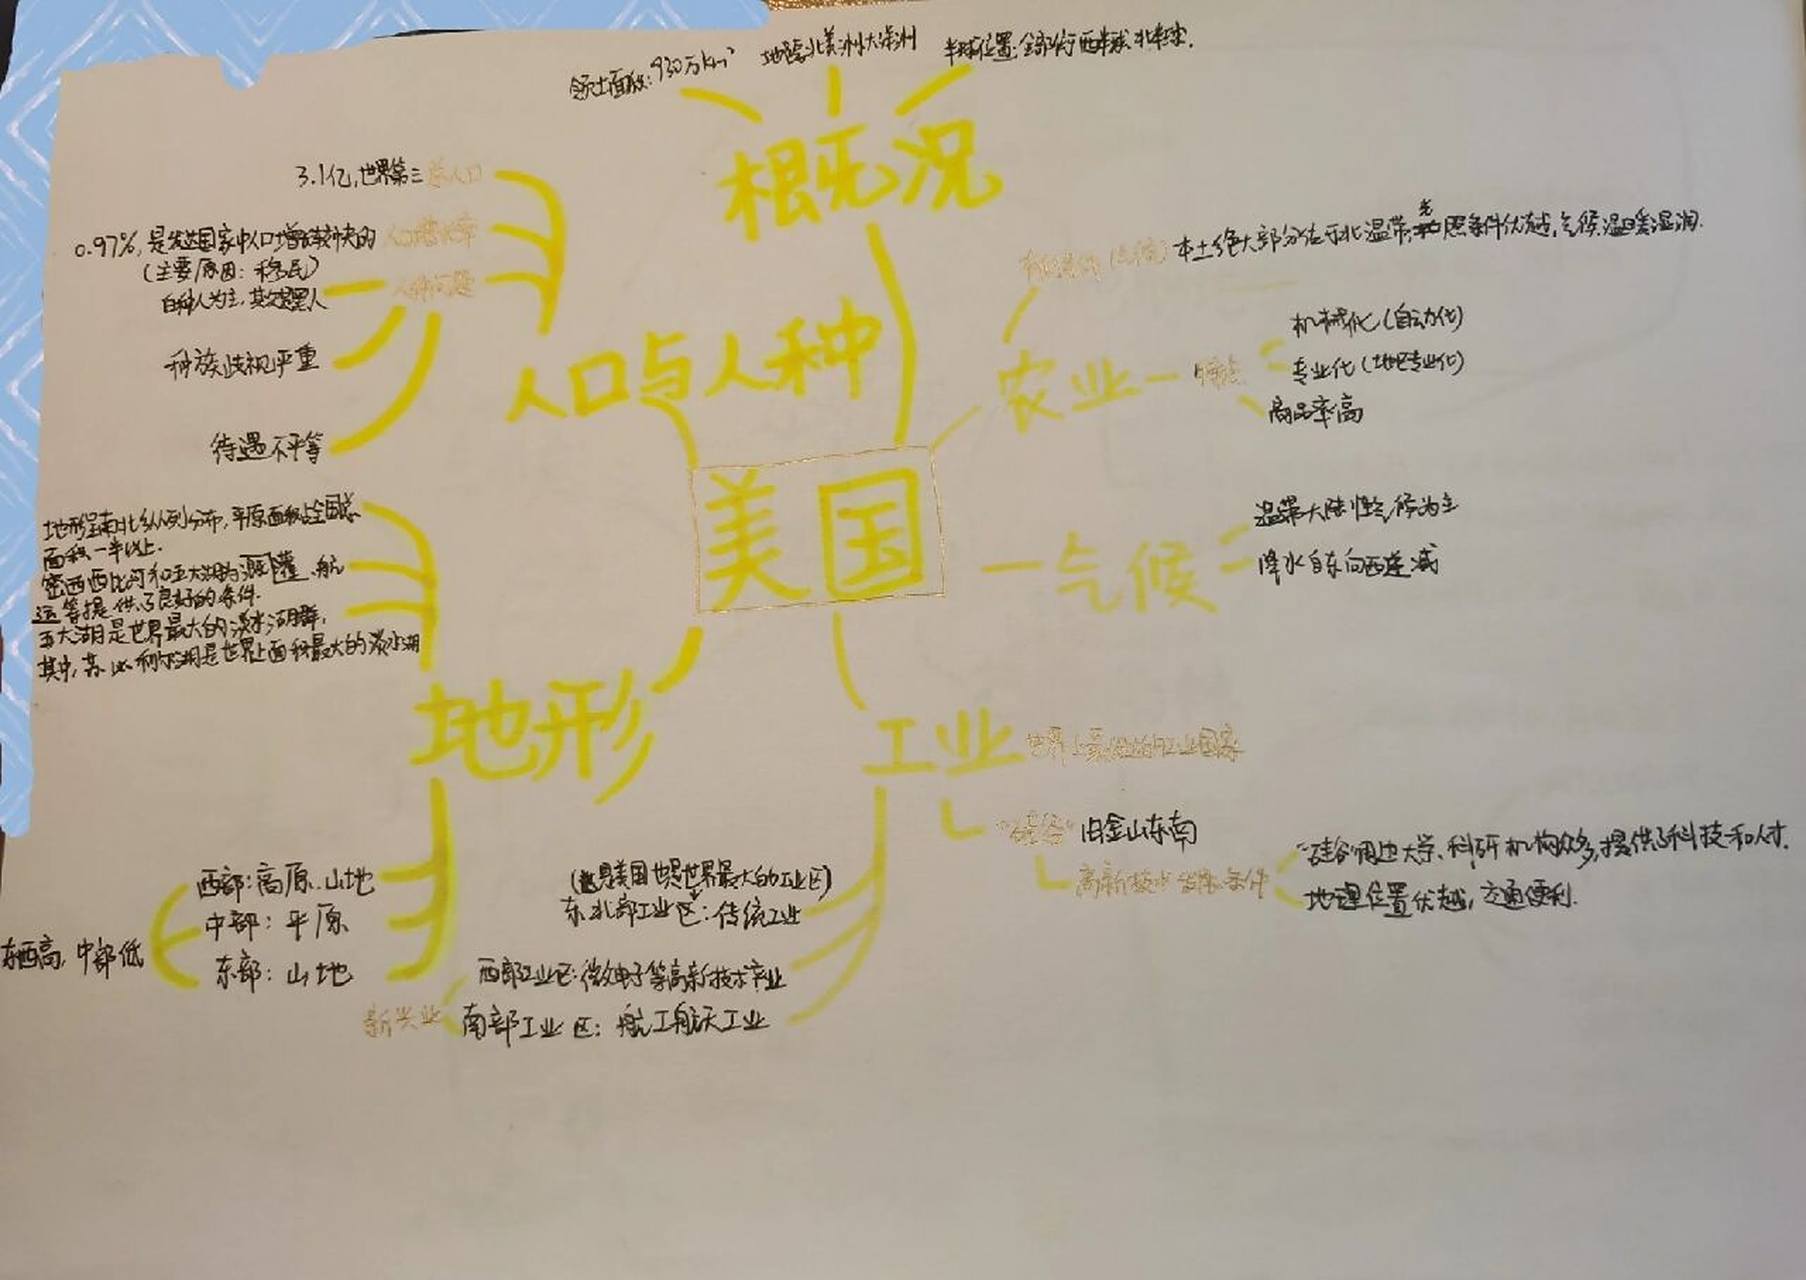 领土面积：930万km²
地跨北美洲大洋洲
半球位置：全部位于西半球、北半球.
概况
3.1亿,世界第三
总人口
0.97%,是发达国家中人口增长较快的
人口增长率
(主要原因：移民)
白种人为主,其次是黑人
人种问题
种族歧视严重
待遇不平等
人口与人种
有利条件(气候)
本土绝大部分位于北温带,光照条件优越,气候温暖湿润.
农业
特点
机械化(自动化)
专业化(地区专业化)
商品率高
美国
气候
温带大陆性气候为主
降水自东向西递减
地形呈南北纵列分布,平原面积占全国总
面积一半以上.
密西西比河和五大湖为灌溉、航
运等提供了良好的条件.
五大湖是世界最大的淡水湖群,
其中,苏必利尔湖是世界上面积最大的淡水湖
地形
西部：高原.山地
中部：平原
东部：山地
东西高,中部低
工业
世界上最发达的工业国家
"硅谷"
旧金山东南
高新技术发展条件
"硅谷"周边大学、科研机构众多,提供了科技和人才.
地理位置优越,交通便利.
(既是美国也是世界最大的工业区)
东北部工业区：传统工业
西部工业区：微电子等高新技术产业
新兴业
南部工业区：航工航天工业